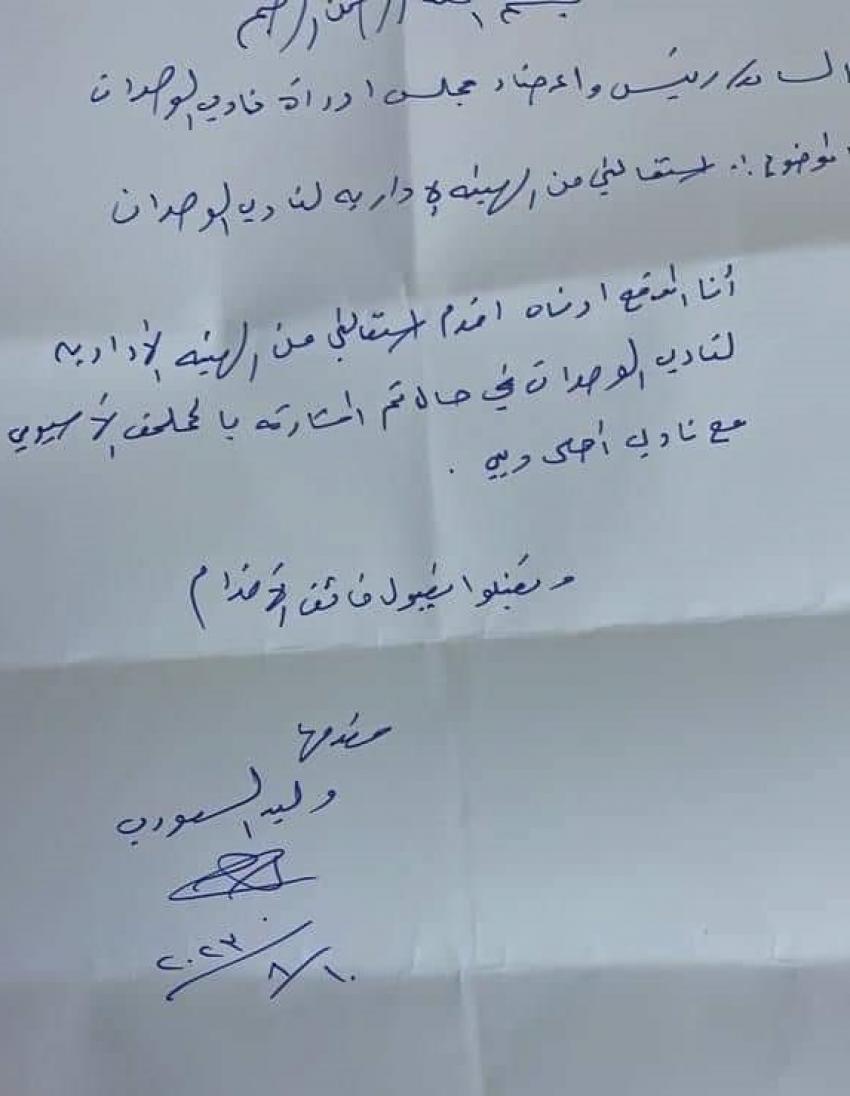 بسم الله الرحمن الرحيم
السادة رئيس واعضاء مجلس ادراة نادي الوحدات
الموضوع :. استقالتي من الهيئه الادارية لنادي الوحدات
أنا الموقع ادناه اقدم استقالتي من الهيئه الأداريه
لنادي الوحدات في حال تم المشاركه بالملحق الأسيوي
مع نادي
وتفضلوا بقبول فائق الأحترام
مقدمها
وليد السعودي
٢٠٢٣/٨/١٠